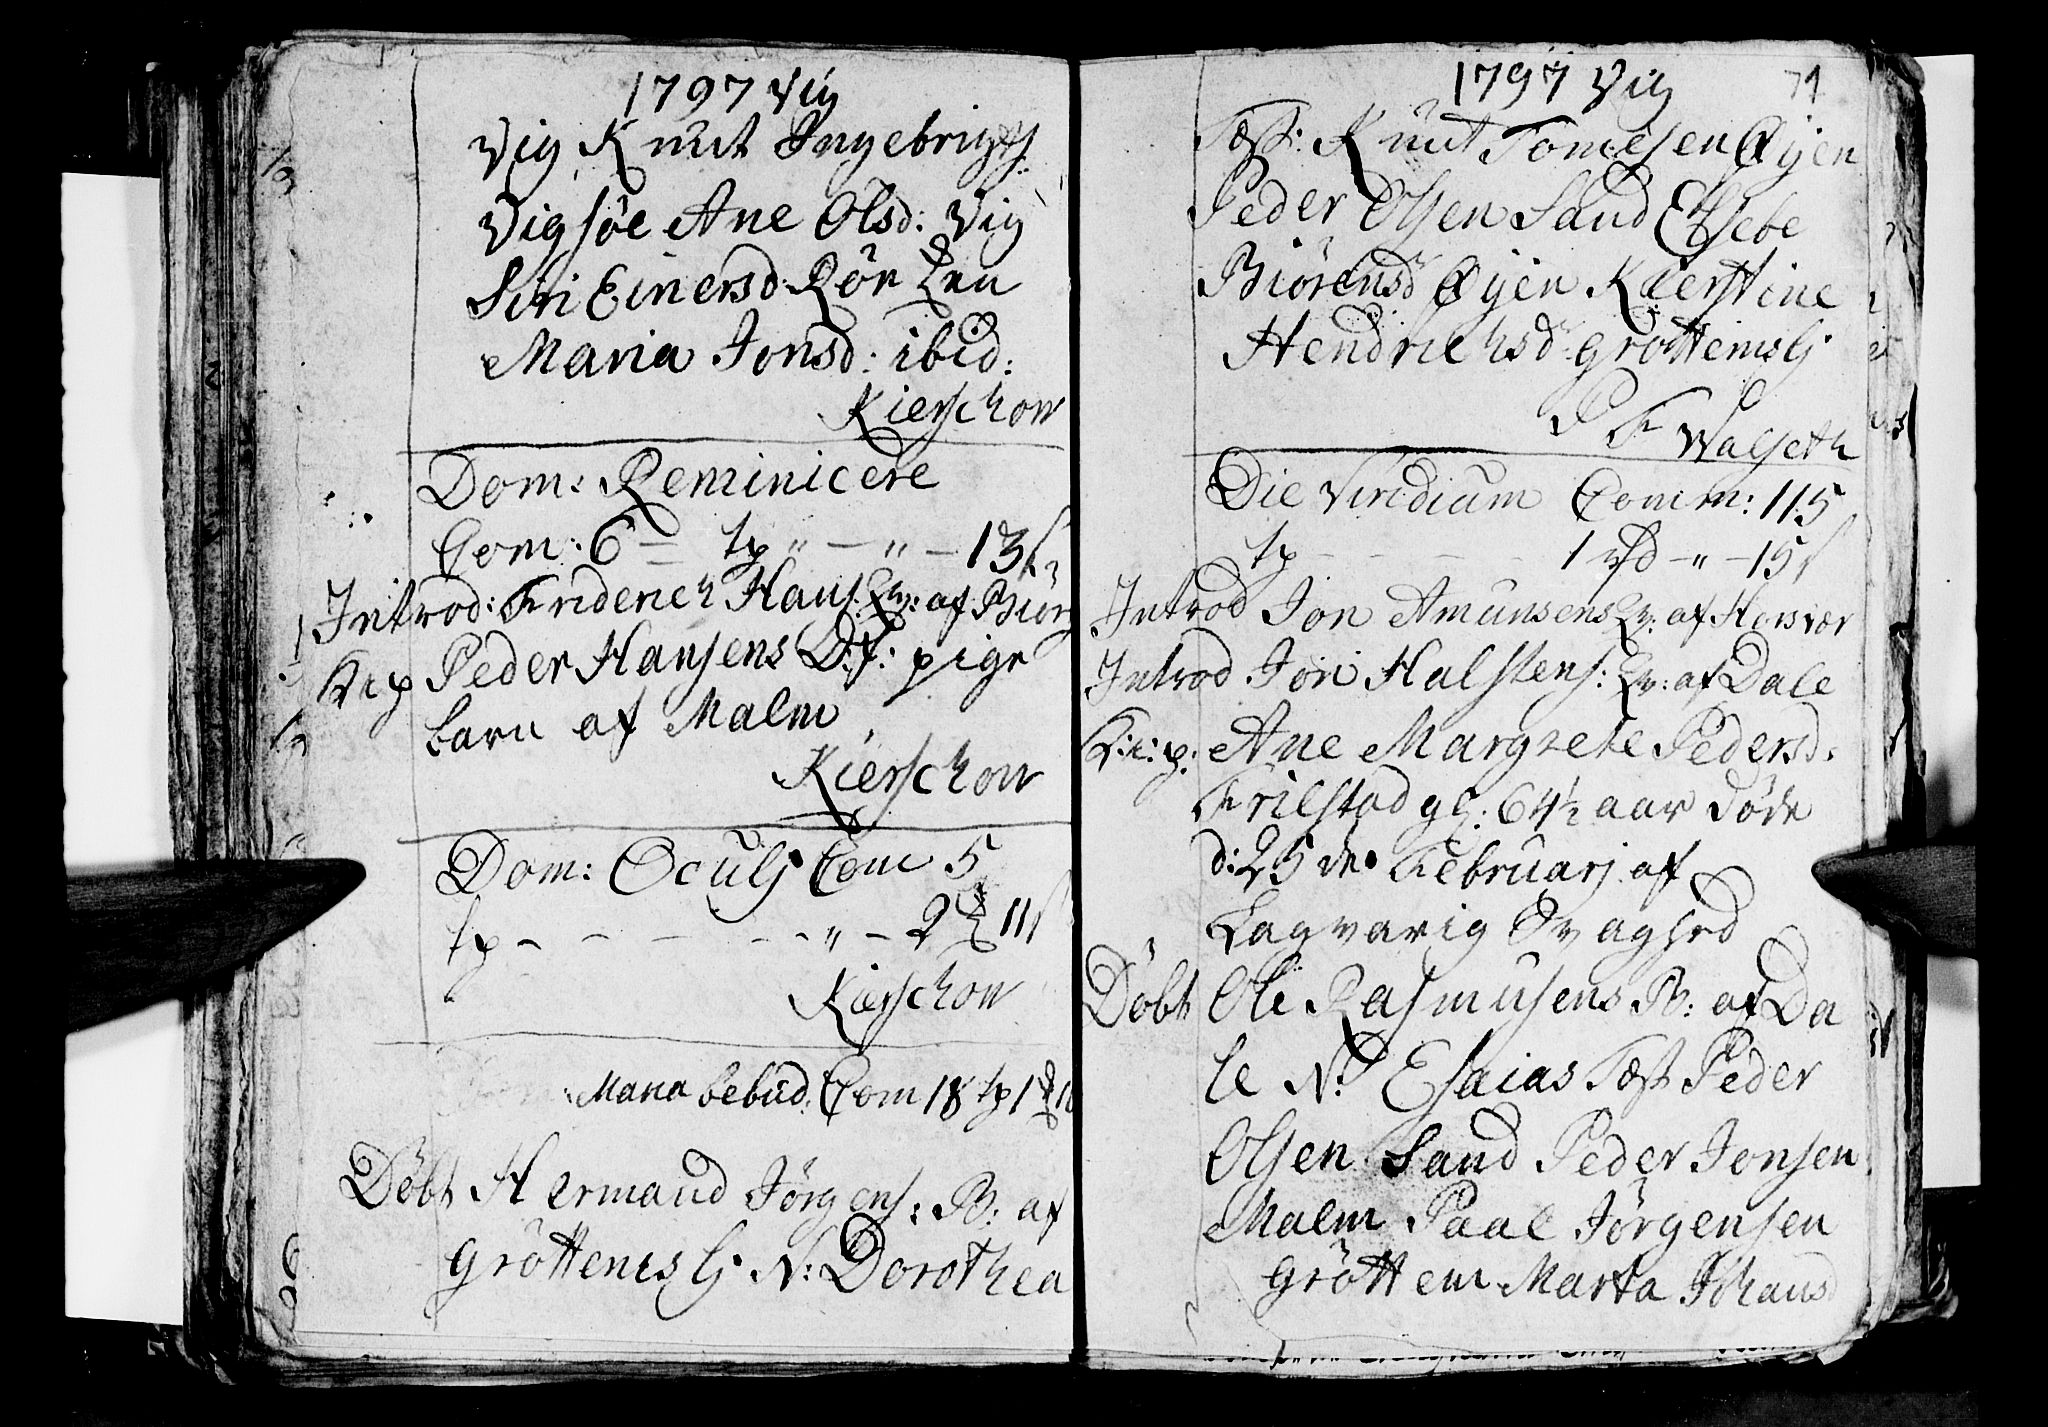 1797 Vig
Vig Knut Ingebrigts:
Vigsöe Ane Olsd: Vig
Siri Einersd: Rör Len
Maria Jonsd: ibid:
Kierschow
Dom: Reminicere
Com: 6 — tp " — " — 13 s
Introd: Friderich Hans: Qv: af Biörg
K: i: p Peder Hansens D: f: pige
barn af Malm
Kierschow
Dom: Oculj Com 5
tp - - - - - " - 2 11 s
Kierschow
Maria bebud: Com 18 tp 1
Döbt Hermand Jörgens: B: af
Gröttemslj: N: Dorothea
1797 Vig 71
Test: Knut Tomesen Öyen
Peder Olsen Sand Elsebe
Biörensd Öyen Kierstine
Hendrichsd: Gröttemslj:
P F Walseth
Die Viridium Comm: 115
tp - - - - 1 rd - " - 15 s
Introd Jon Amunsens Qv: af Hersvær
Introd Jon Halstens: Qv: af Dale
K: i: p: Ane Margrete Pedersd:
Frilstad gl: 64½ aar döde
d: 25 de Februarj af
Langvarig Svaghed
Döbt Ole Rasmusens B: af Da
le N: Esaias Test Peder
Olsen Sand Peder Jonsen
Malm Paal Jörgensen
Gröttem Marta Johansd